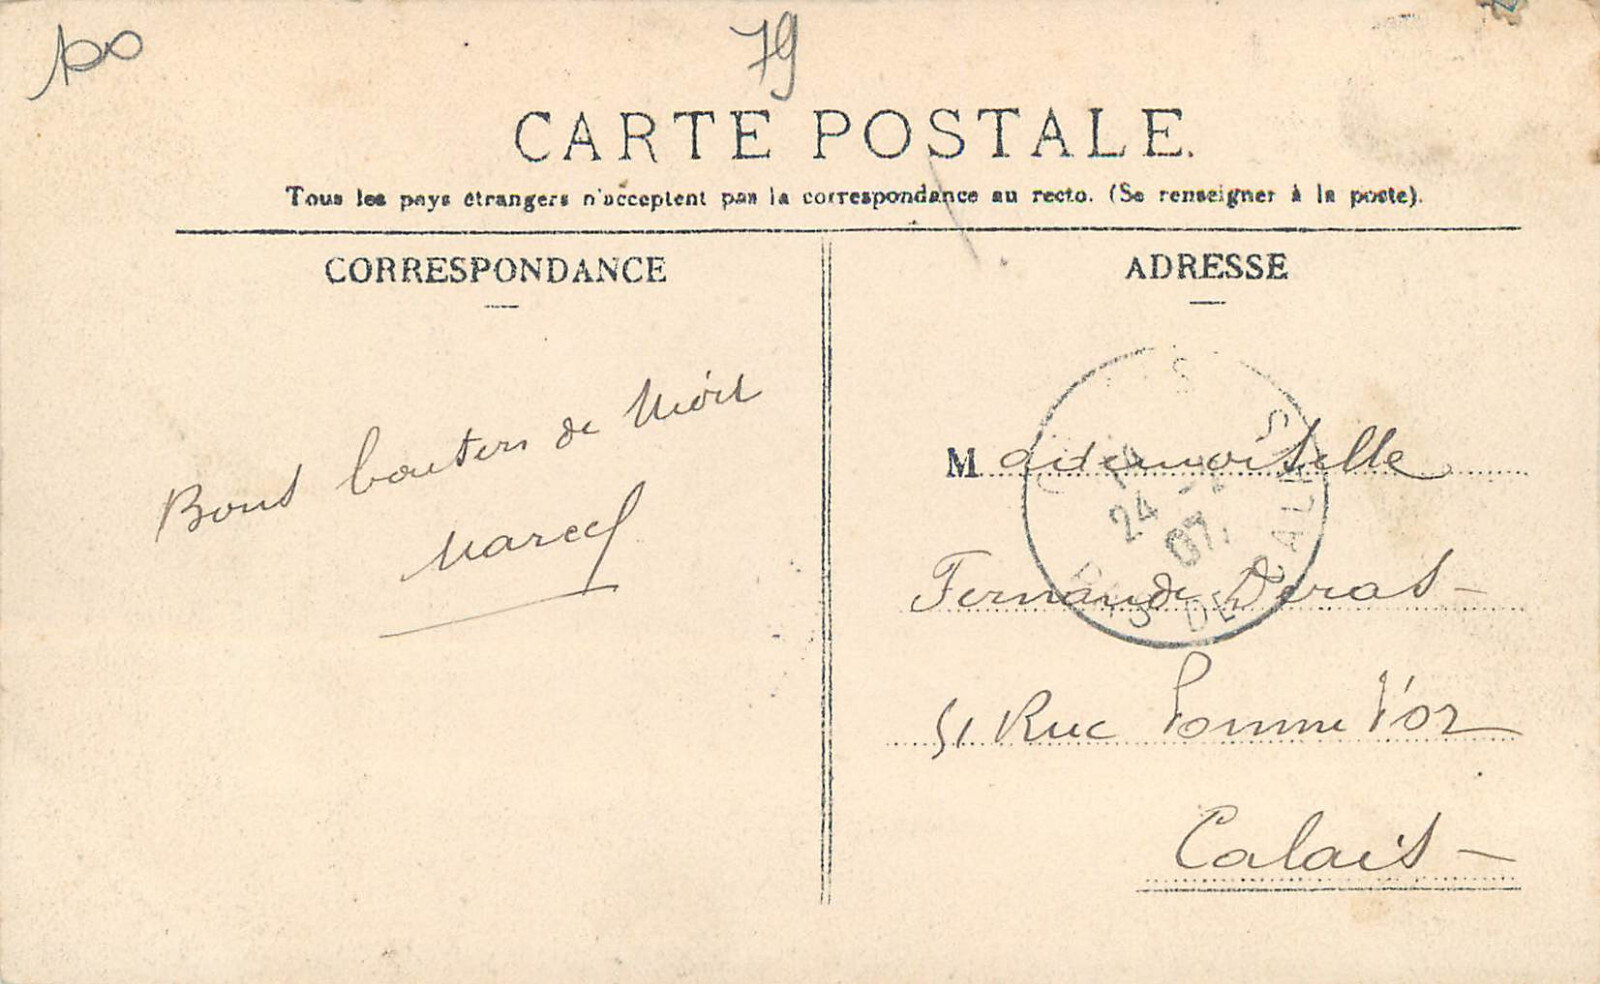 100
79
CARTE POSTALE.
Tous les pays étrangers n'acceptent pas la correspondance au recto. (Se renseigner à la poste).
CORRESPONDANCE
Bons de Niort
Marcel
ADRESSE
Mademoiselle
Fernande Deras
51 Rue Pomme d'or
Calais
24
07
PAS DE CALAIS